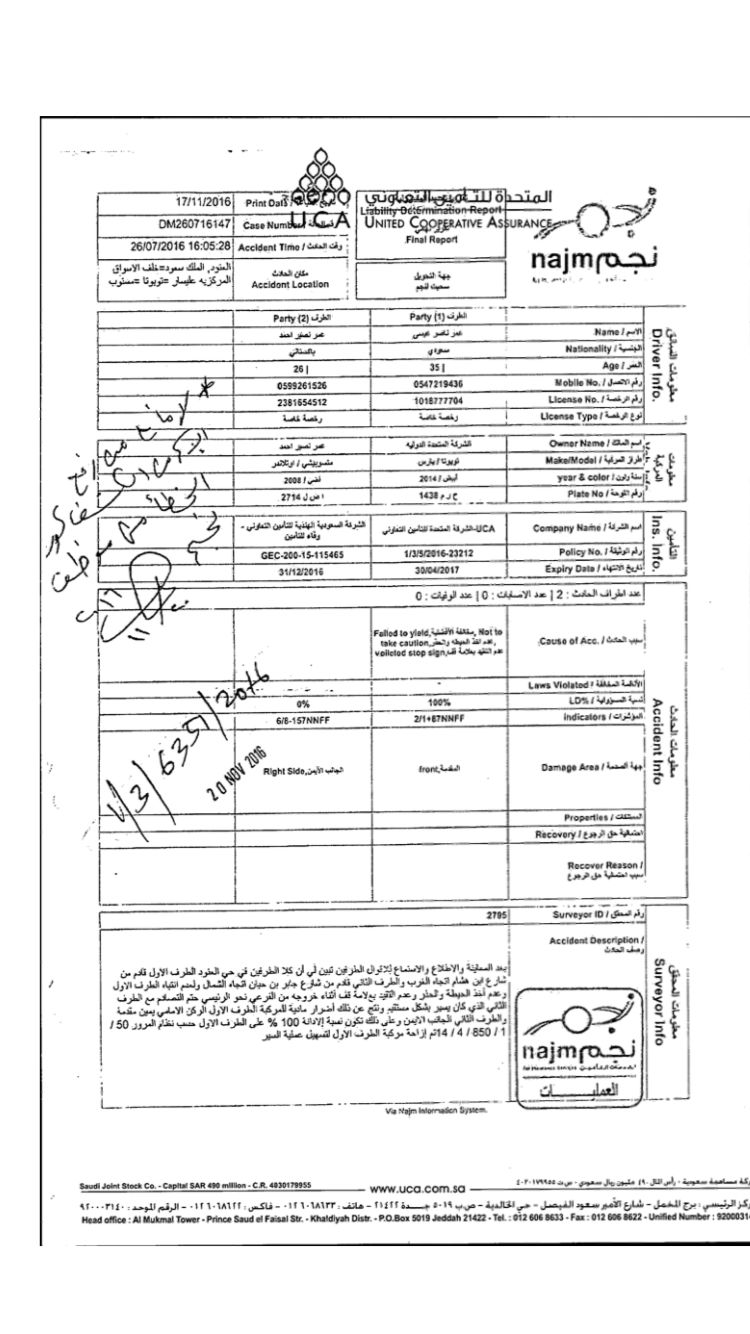 المتحدة للتأمين التعاوني
UCA UNITED COOPERATIVE ASSURANCE
Liability Determination Report
Final Report
نجم najm
17/11/2016 Print Date /
DM260716147 Case Number /
26/07/2016 16:05:28 Accident Time / وقت الحادث
العنود, الملك سعود=خلف الاسواق
المركزيه عليسار =تويوتا =مستوب
مكان الحادث
Accident Location
جهة التحويل
معلومات السائق
Driver Info.
الطرف (2) Party الطرف (1) Party
عمر نصير احمد عمر ناصر عيسى Name / الاسم
باكستاني سعودي Nationality / الجنسية
26 | 35 | Age / العمر
0599261526 0547219436 Mobile No. / رقم الاتصال
2381654512 1018777704 License No. / رقم الرخصة
رخصة خاصة رخصة خاصة License Type / نوع الرخصة
معلومات المركبة
عمر نصير احمد الشركة المتحدة الدوليه Owner Name / اسم المالك
متسوبيشي / اوتلاندر تويوتا / يارس Make/Model / طراز المركبة
فضي / 2008 أبيض / 2014 year & color / سنة ولون
ا ص ل 2714 ح ر م 1438 Plate No / رقم اللوحة
التأمين
Ins. Info.
الشركة السعودية الهندية للتأمين التعاوني - وفاء للتأمين UCA-الشركة المتحدة للتأمين التعاوني Company Name / اسم الشركة
GEC-200-15-115465 1/3/5/2016-23212 Policy No. / رقم الوثيقة
31/12/2016 30/04/2017 Expiry Date / تاريخ الانتهاء
عدد اطراف الحادث : 2 | عدد الاصابات : 0 | عدد الوفيات : 0
معلومات الحادث
Accident Info
Failed to yield,مخالفة الأفضلية, Not to
take caution,عدم اخذ الحيطه والحذر,
voileted stop sign,عدم التقيد بعلامة قف
Cause of Acc. / سبب الحادث
- Laws Violated / الأنظمة المخالفة
0% 100% LD% / نسبة المسؤولية
6/8-157NNFF 2/1+87NNFF Indicators / المؤشرات
Right Side,الجانب الأيمن front,المقدمة Damage Area / جهة الصدمة
Properties / الممتلكات
Recovery / احتمالية حق الرجوع
Recover Reason /
سبب احتمالية حق الرجوع
1/3/6351/2016
20 NOV 2016
معلومات المحقق
Surveyor Info
2795 Surveyor ID / رقم المحقق
Accident Description /
وصف الحادث
بعد المعاينة والاطلاع والاستماع للاقوال الطرفين تبين لي أن كلا الطرفين في حي العنود الطرف الاول قادم من
شارع ابن هشام اتجاه الغرب والطرف الثاني قادم من شارع جابر بن حيان اتجاه الشمال ولعدم انتباه الطرف الاول
وعدم أخذ الحيطة والحذر وعدم التقيد بعلامة قف أثناء خروجه من الفرعي نحو الرئيسي حتم التصادم مع الطرف
الثاني الذي كان يسير بشكل مستقيم ونتج عن ذلك أضرار مادية للمركبة الطرف الاول الركن الامامي يمين مقدمة
والطرف الثاني الجانب الايمن وعلى ذلك تكون نسبة الإدانة 100 % على الطرف الاول حسب نظام المرور 50 /
1 / 850 / 4 / 14تم إزاحة مركبة الطرف الاول لتسهيل عملية السير
نجم najm
العمليـــات
Via Najm Information System.
Saudi Joint Stock Co. - Capital SAR 490 million - C.R. 4030179955
www.uca.com.sa
Head office : Al Mukmal Tower - Prince Saud el Faisal Str. - Khaldiyah Distr. - P.O.Box 5019 Jeddah 21422 - Tel. : 012 606 8633 - Fax : 012 606 8622 - Unified Number :